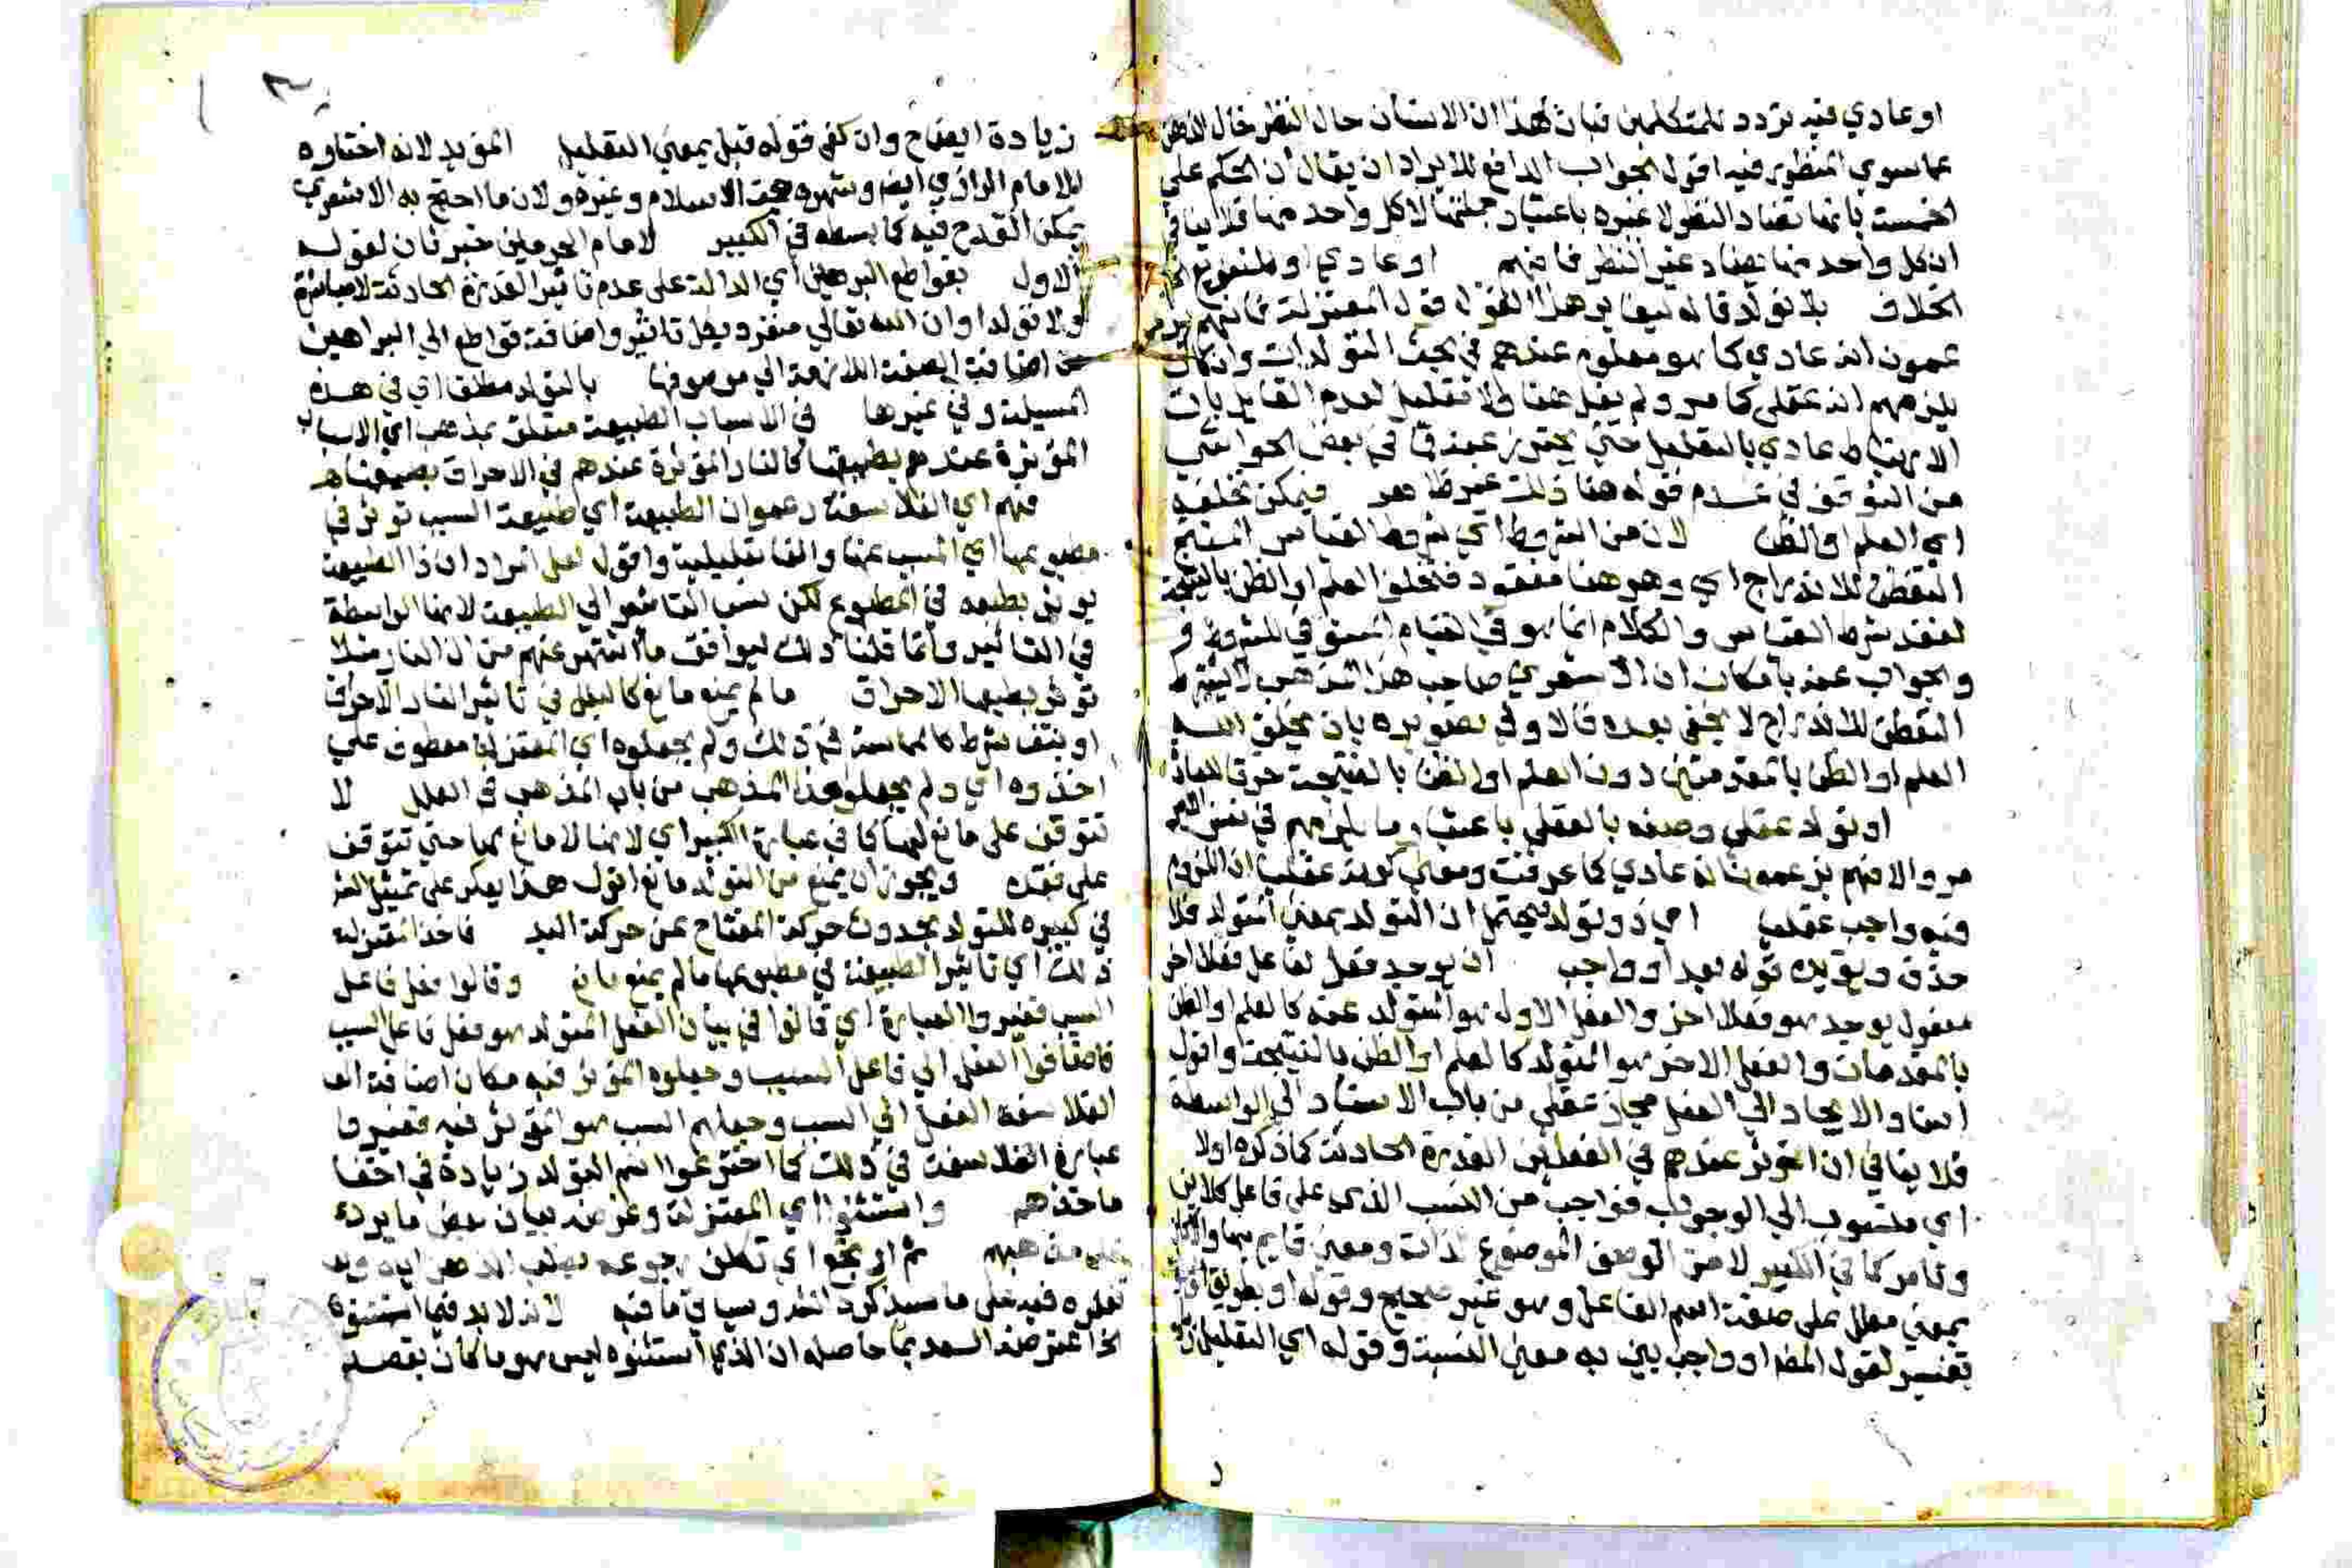 او عادي فيه تردد للمتكلمين فبان بهذا ان الانسان حال النظر خال
عما سوى المنظور فيه اقول الجواب الدافع للايراد ان يقال ان الحكم على
الخمسة بانها تضاد النظر لا غيره باعتبار جملتها لا كل واحد منها فلا ينافي
ان كل واحد منها يضاد غير النظر فافهم او عادي او
الخلاف بلا تولد قاله ليغاير هذا القول قول المعتزلة فانهم
عمون انه عادي كما هو معلوم عندهم في بحث المتولدات وان كان
يلزمهم انه عقلي كما مر ولم يقل هنا ولا تعليل لعدم القايل بان
الارتباط عادي بالتعليل حتى يحترز عنه فما في بعض الحواشي
من التوقف في عدم قوله هنا ذلك غير ظاهر فيمكن تخلفه
اي العلم او الظن لان من الشروط اي شروط القياس المنتج
التفطن للاندراج اي وهو هنا مفقود فتخلف العلم او الظن بالنتيجة
لفقد شرط القياس والكلام انما هو في القياس المستوفي للشروط
والجواب عنه بامكان ان الاشعري صاحب هذا المذهب لا يشترط
التفطن للاندراج لا يخفى بعده قالا ولي تصويره بان يخلق الله
العلم او الظن بالمقدمتين دون العلم او الظن بالنتيجة خرقا للعادة
او تولد عقلي وصفه بالعقلي باعتبار ما يلزمهم في نفس
مر والا فهم يزعمون انه عادي كما عرفت ومعنى كونه عقليا ان اللزوم
فيه واجب عقلي اي ذو تولد فيحتمل ان التولد بمعنى المتولد فلا
حذف ويؤيده قوله بعد او واجب ان يوجد فعل لفاعل فعلا اخر
مفعول يوجد هو فعلا اخر والفعل الاول هو المتولد عنه كالعلم او الظن
بالمقدمات والفعل الاخر هو المتولد كالعلم او الظن بالنتيجة واقول
اسناد الايجاد الى الفعل مجاز عقلي من باب الاسناد الى الواسطة
فلا ينافي ان المؤثر عندهم في الفعلين القدرة الحادثة كما ذكره اولا
اي منسوب الى الوجوب فواجب من النسب الذي على فاعل كلابن
وتامر كما في الكبير لا من الوصف الموضوع لذات ومعنى قايم بها
بمعنى معلل على صفة اسم الفاعل وهو غير صحيح وقوله او بطريق
تفسير لقول المص او واجب بين به معنى النسبة وقوله اي التعليل
زيادة ايضاح وان كفى قوله قبل بمعنى التعليل المؤيد لانه اختاره
الامام الرازي ايضا وشهره حجة الاسلام وغيره ولان ما احتج به الاشعري
يمكن القدح فيه كما بسطه في الكبير لامام الحرمين خبر ثان لقوله
الاول بقواطع البراهين اي الدالة على عدم تاثير القدرة الحادثة لا مباشرة
ولا تولدا وان الله تعالى منفرد بكل تاثير واضافة قواطع الى البراهين
من اضافة الصفة اللازمة الى موصوفها بالتولد مطلق اي في هذه
المسيلة وفي غيرها في الاسباب الطبيعية متعلق بمذهب اي الاسباب
المؤثرة عندهم بطبيعتها كالنار المؤثرة عندهم في الاحراق بطبيعتها
فهم اي الفلاسفة زعموا ان الطبيعة اي طبيعة السبب تؤثر في
مطبوعها اي المسبب عنها والفا تعليلية واقول لعل المراد ان ذا الطبيعة
يؤثر بطبعه في المطبوع لكن نسب التاثير الى الطبيعة لانها الواسطة
في التاثير وانما قلنا ذلك ليوافق ما اشتهر عنهم من ان النار مثلا
تؤثر بطبعها الاحراق ما لم يمنع مانع كالبلل في تاثير النار الاحراق
او ينتف شرط كالمماسة في ذلك ولم يجعلوه اي المعتزلة معطوف على
اخذوه اي ولم يجعلوا هذا المذهب من باب المذهب في العلل لا
تتوقف على مانع لها كما في عبارة الكبير اي لانها لا مانع لها حتى تتوقف
على فقده ويجوز ان يمنع من التولد مانع اقول هذا يعكر على تمثيل
في كبيره للتولد بحدوث حركة المفتاح عن حركة اليد فاخذ المعتزلة
ذلك اي تاثير الطبيعة في مطبوعها ما لم يمنع مانع وقالوا فعل فاعل
السبب فغيروا العبارة اي قالوا في بيان الفعل المتولد هو فعل فاعل السبب
فاضافوا الفعل الى فاعل السبب وجعلوه المؤثر فيه مكان اضافة
الفلاسفة الفعل الى السبب وجعلهم السبب هو المؤثر فيه فغيروا
عبارة الفلاسفة في ذلك كما اخترعوا اسم التولد زيادة في اخفا
ماخذهم واستثنوا اي المعتزلة وغرضه بيان بعض ما يرد
على مذهبهم ثم
فيه على ما سيذكره السعد وسياتي ما فيه لانه لا بد فيما استثنوه
الخ اعترضه السعد بما حاصله ان الذي استثنوه ليس هو ما كان بقصد